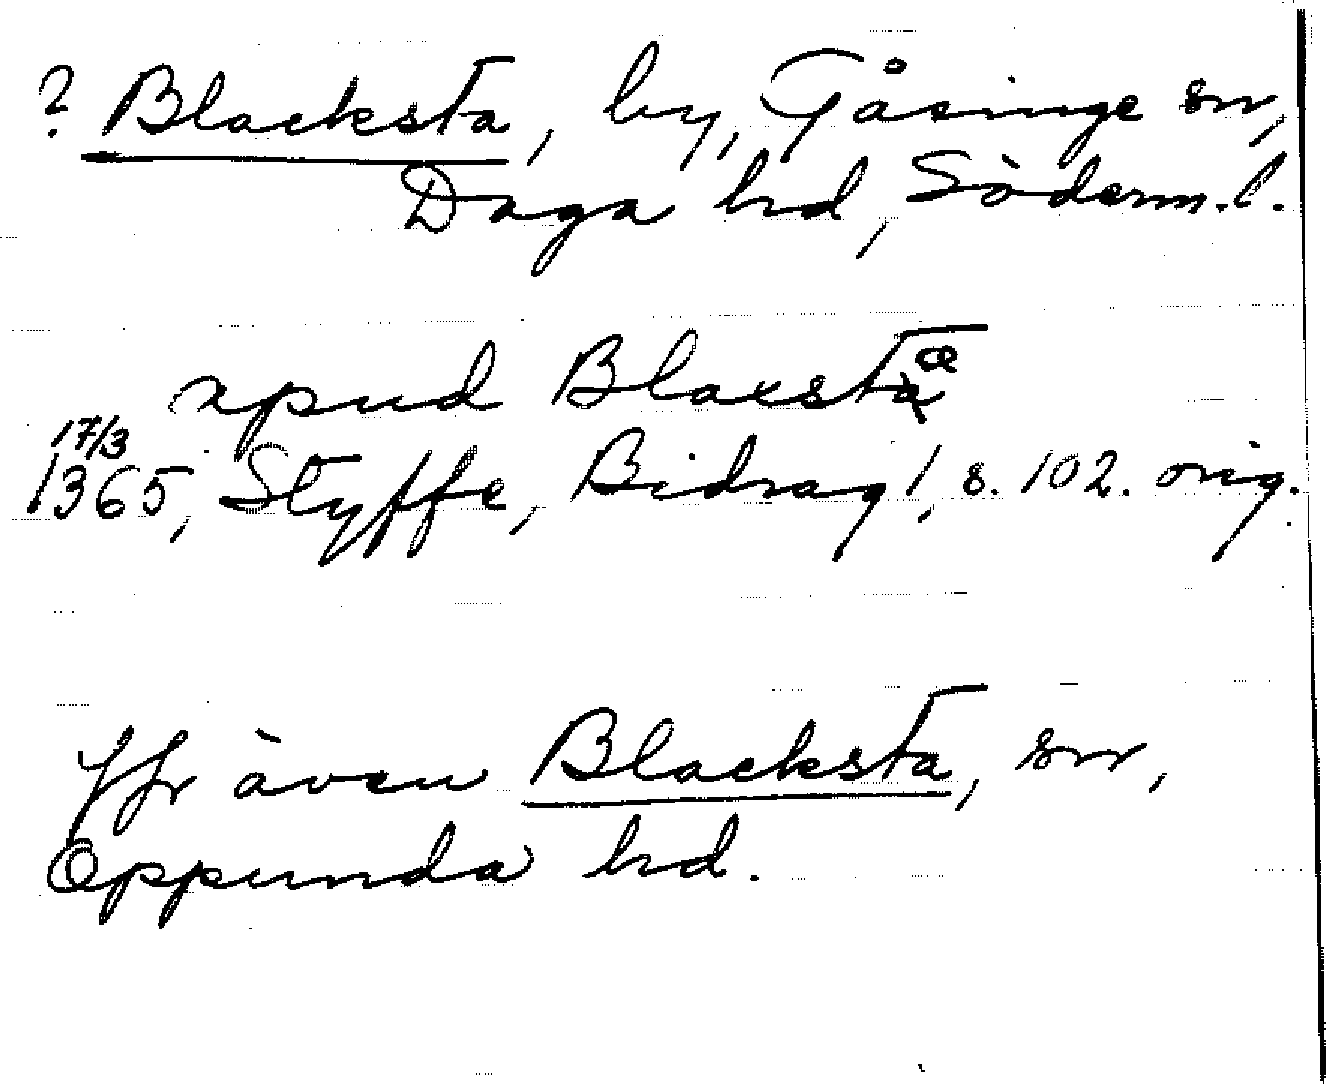 ? Blacksta, by, Gåsinge sn,
Daga hd, Söderm. l.
apud Blacstæ
17/3
1365, Styffe, Bidrag 1, s. 102. orig.
Jfr även Blacksta, sn,
Oppunda hd.